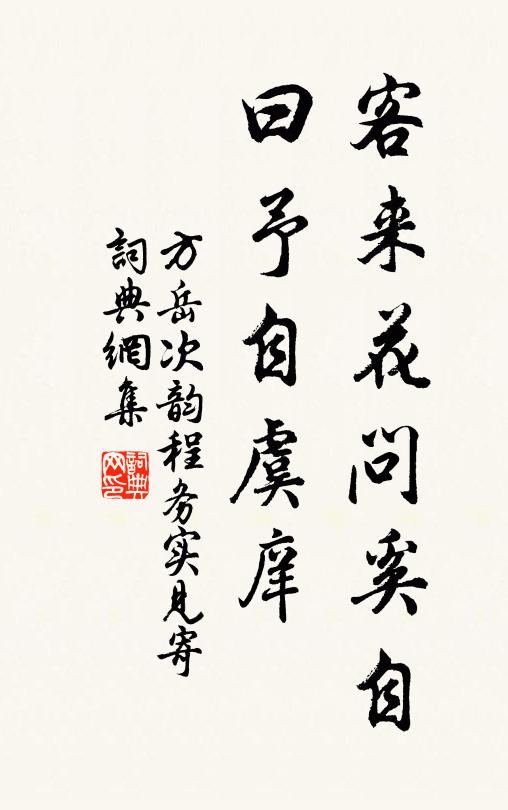 客来花问奚自
曰予自虞庠
方岳次韵程务实见寄
詞典網集
詞典网印